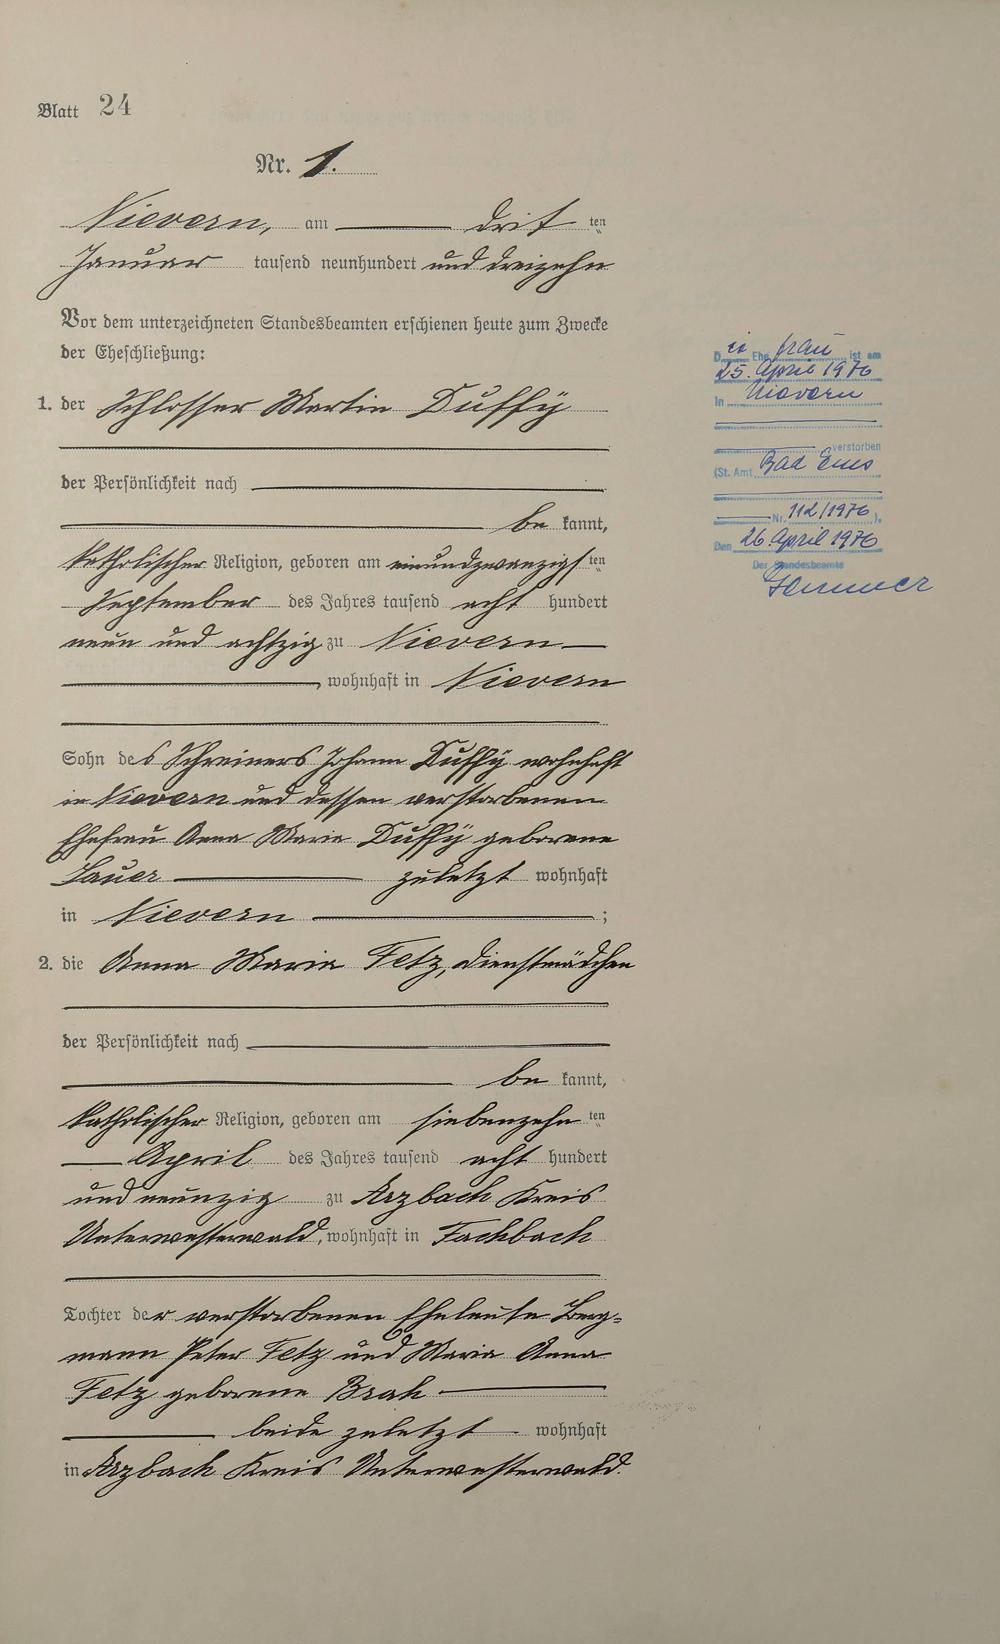 Blatt 24
Nr. 1.
Nievern, am drit ten
Januar tausend neunhundert und dreizehn
Vor dem unterzeichneten Standesbeamten erschienen heute zum Zwecke
der Eheschließung:
1. der Schlosser Martin Duffÿ
der Persönlichkeit nach
be kannt,
katholischer Religion, geboren am einundzwanzigs ten
September des Jahres tausend acht hundert
neun und achtzig zu Nievern
, wohnhaft in Nievern
Sohn des Schreiners Johann Duffÿ wohnhaft
in Nievern und dessen verstorbenen
Ehefrau Anna Maria Duffÿ geborene
Lauer zuletzt wohnhaft
in Nievern ;
2. die Anna Maria Fetz, Dienstmädchen
der Persönlichkeit nach
be kannt,
katholischer Religion, geboren am siebenzehn ten
April des Jahres tausend acht hundert
und neunzig zu Arzbach Kreis
Unterwesterwald, wohnhaft in Fachbach
Tochter der verstorbenen Eheleute Berg=
mann Peter Fetz und Maria Anna
Fetz geborene Brah
beide zuletzt wohnhaft
in Arzbach Kreis Unterwesterwald.
Die Ehefrau ist am
25. April 1976
in Nievern
verstorben
(St. Amt Bad Ems
Nr. 112/1976 ).
Den 26. April 1976
Der Standesbeamte